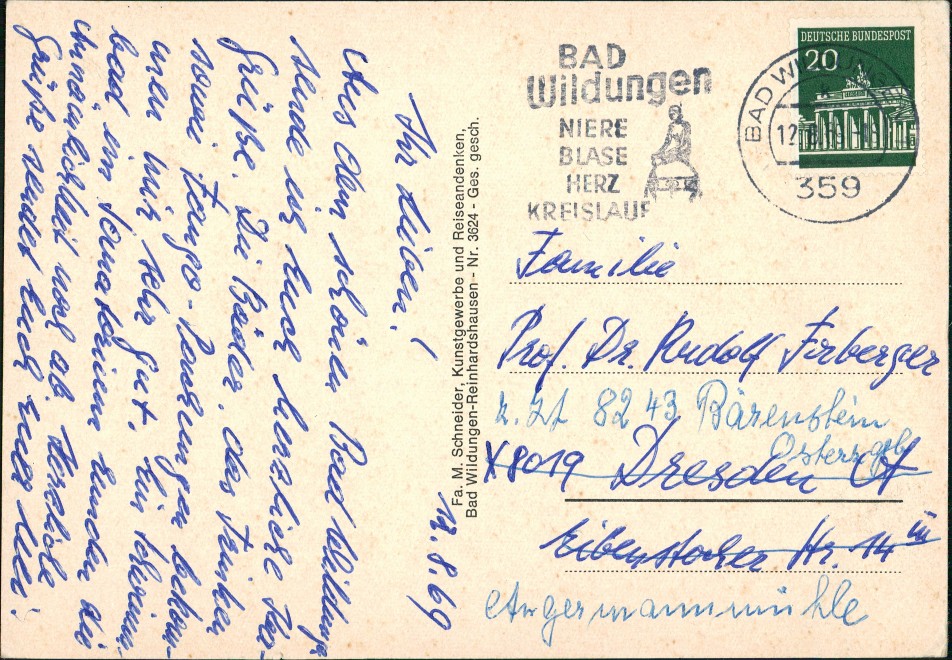 Ihr Lieben!
Aus dem schönen Bad Wildungen
sende ich Euch herzliche Fe-
Grüße. Die Bäder, das Trinken
sowie Fango-Packungen bekom-
men mir sehr gut. Ein Schwimm-
bad im Sanatorium runden die
noch ab. Herzliche
Grüße sendet Euch
12.8.69
Fa. M. Schneider, Kunstgewerbe und Reiseandenken,
Bad Wildungen-Reinhardshausen - Nr. 3624 - Ges. gesch.
BAD
Wildungen
NIERE
BLASE
HERZ
KREISLAUF
DEUTSCHE BUNDESPOST
20
BAD WILDUNGEN
12.8.69
359
Familie
Prof. Dr. Rudolf Firberger
z. Zt 8243 Bärenstein
Osterzgeb
X 8019 Dresden A
Eibenstocker Str. 14
Angermannmühle